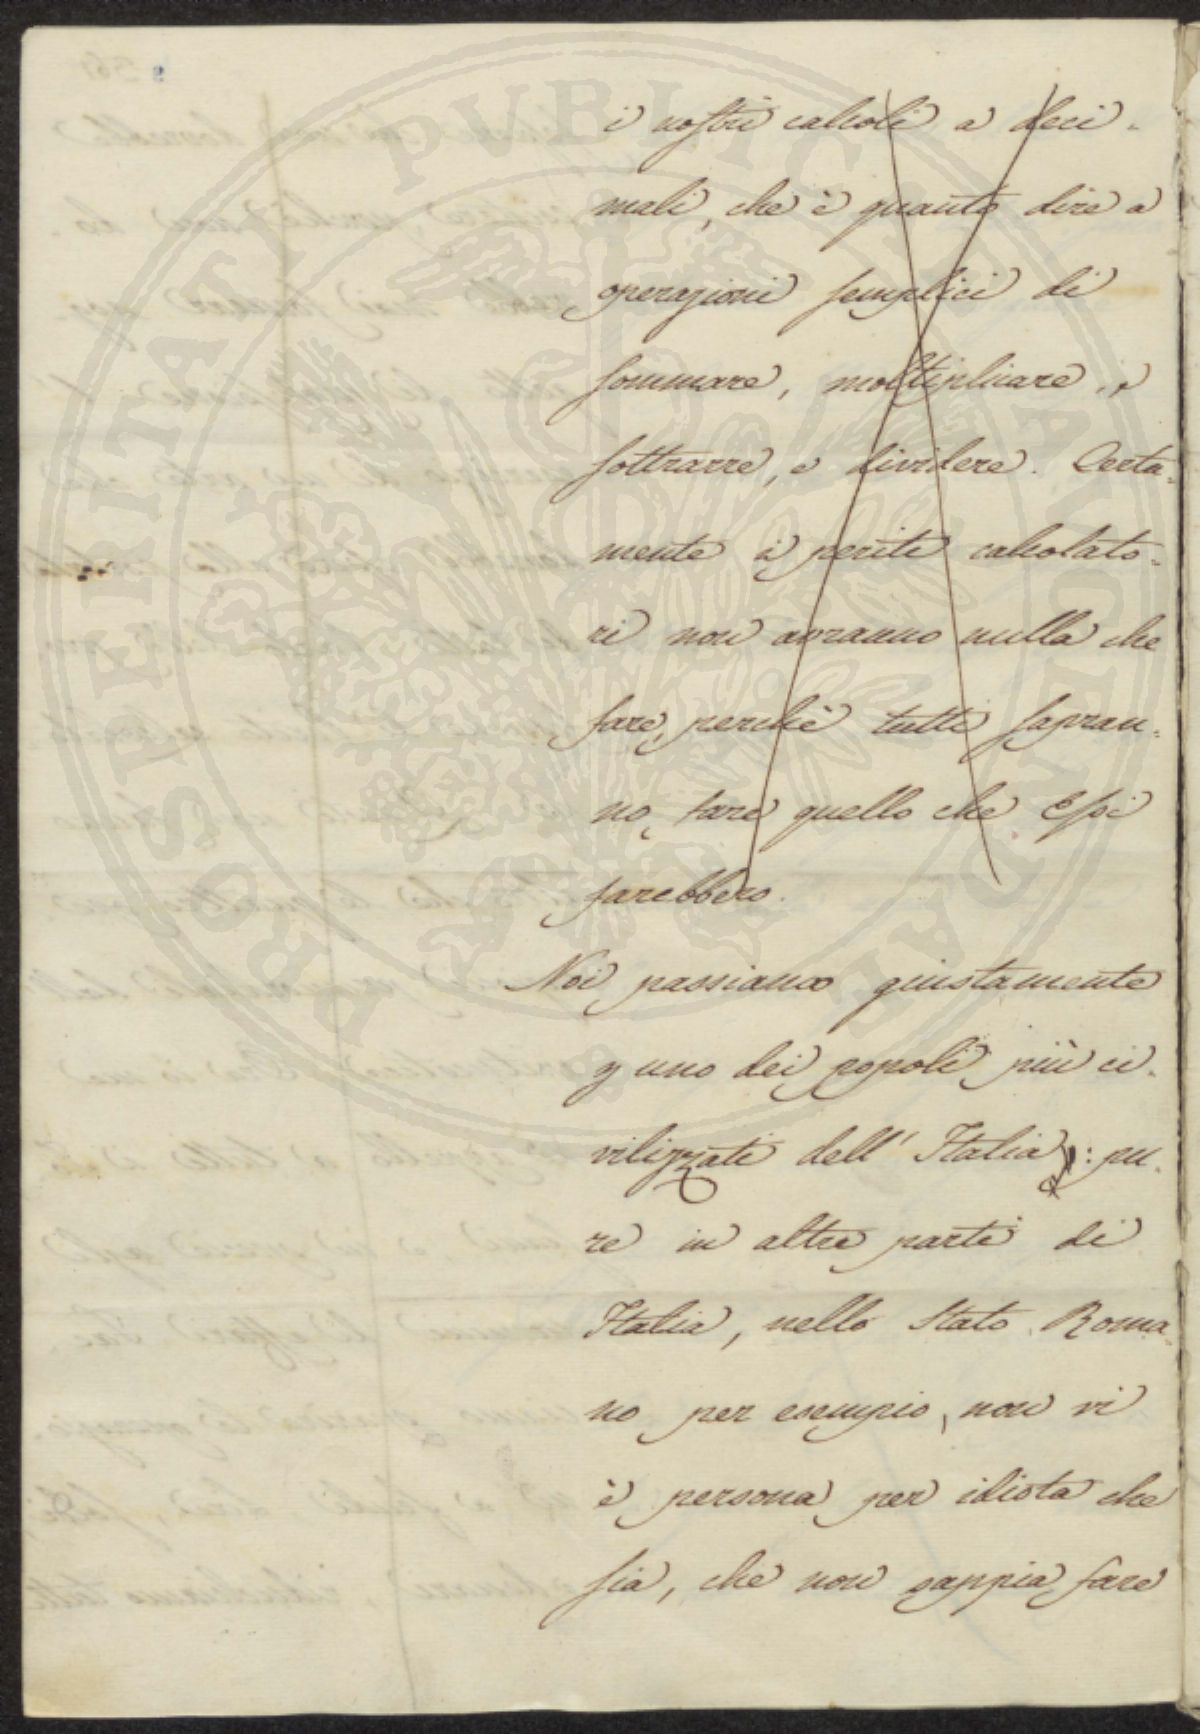 i nostri calcoli a deci-
mali, che è quanto dire a
operazioni semplici di
sommare, moltiplicare, e
sottrarre, e dividere. Certa-
mente i periti calcolato-
ri non avranno nulla che
fare, perchè tutti sapran-
no fare quello che Essi
farebbero.
Noi passiamo giustamente
p uno dei popoli più ci-
vilizzati dell' Italia: pu-
re in altre parti di
Italia, nello Stato Roma
no per esempio, non vi
è persona per idiota che
sia, che non sappia fare
PROSPERITATI PUBLICAE AUGENDAE